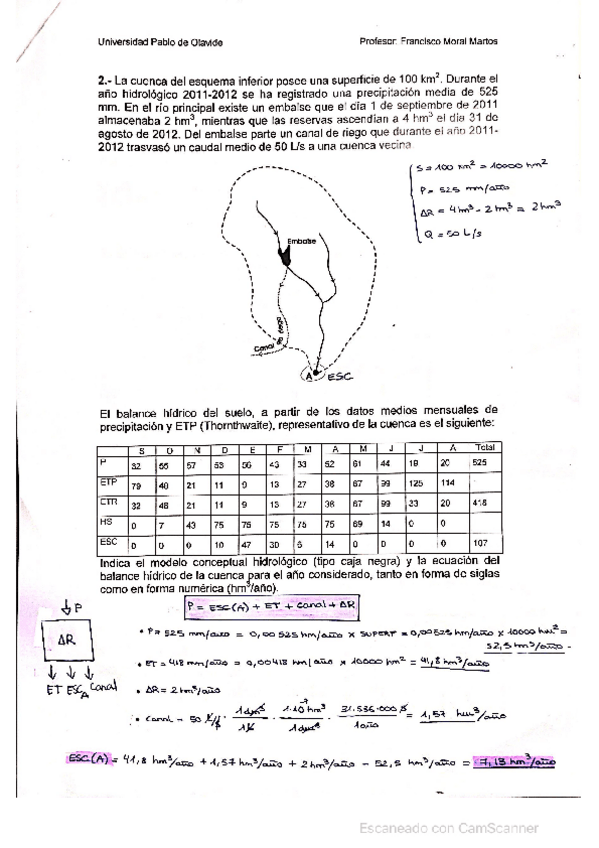 Universidad Pablo de Olavide Profesor: Francisco Moral Martos
2.- La cuenca del esquema inferior posee una superficie de 100 km². Durante el
año hidrológico 2011-2012 se ha registrado una precipitación media de 525
mm. En el río principal existe un embalse que el día 1 de septiembre de 2011
almacenaba 2 hm³, mientras que las reservas ascendían a 4 hm³ el día 31 de
agosto de 2012. Del embalse parte un canal de riego que durante el año 2011-
2012 trasvasó un caudal medio de 50 L/s a una cuenca vecina.
S = 100 km² = 10000 hm²
P = 525 mm/año
ΔR = 4 hm³ - 2 hm³ = 2 hm³
Q = 50 L/s
Embalse
Canal de riego
A ESC
El balance hídrico del suelo, a partir de los datos medios mensuales de
precipitación y ETP (Thornthwaite), representativo de la cuenca es el siguiente:
S O N D E F M A M J J A Total
P 32 55 57 53 56 43 33 52 61 44 18 20 525
ETP 79 40 21 11 9 13 27 38 67 99 125 114
ETR 32 48 21 11 9 13 27 38 67 99 33 20 418
HS 0 7 43 75 75 75 75 75 69 14 0 0
ESC 0 0 0 10 47 30 6 14 0 0 0 0 107
Indica el modelo conceptual hidrológico (tipo caja negra) y la ecuación del
balance hídrico de la cuenca para el año considerado, tanto en forma de siglas
como en forma numérica (hm³/año).
P = ESC(A) + ET + Canal + ΔR
↓P
ΔR
ET ESC A Canal
• P = 525 mm/año = 0,00525 hm/año × SUPERF = 0,00525 hm/año × 10000 hm² =
52,5 hm³/año
• ET = 418 mm/año = 0,00418 hm/año × 10000 hm² = 41,8 hm³/año
• ΔR = 2 hm³/año
• Canal = 50 L/s · 1 dm³/1L · 1·10⁻⁹ hm³/1 dm³ · 31.536.000 s/1 año = 1,57 hm³/año
ESC(A) = 41,8 hm³/año + 1,57 hm³/año + 2 hm³/año - 52,5 hm³/año = 7,13 hm³/año
Escaneado con CamScanner